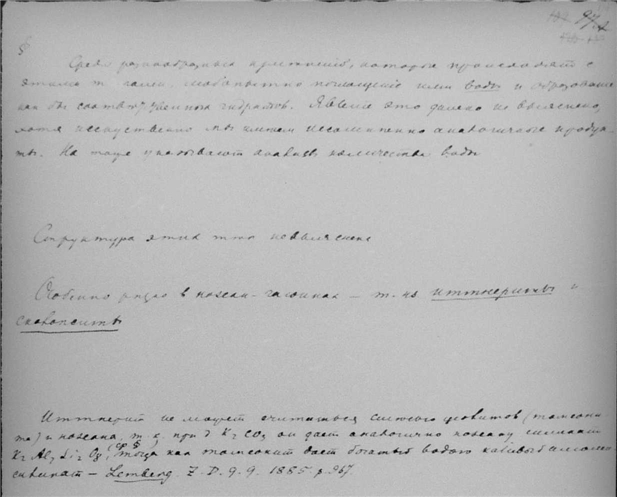 97
§ Среди разнообразных изменений, которые происходят с
этими т. солей, любопытно поглощение ими воды и образование
как бы соответственных гидратов. Явление это далеко не выяснено,
хотя искусственно мы имеем несомненно аналогичные продук-
ты. На то же указывают анализы количества воды
Структура этих тел не выяснена
Особенно резко в нозеан-гаюинах — т. наз иттнериты и
сколопситы
Иттнерит не может считаться смесью цеолитов (томсони-
та) и нозеана, т. д. при K₂CO₃ он дает аналогично нозеану силикат
K₂Al₂Si₂O₈, тогда как томсонит дает богатый водою калиевый алюмо-
силикат — Lemberg. Z. D. g. G. 1885 p. 967.